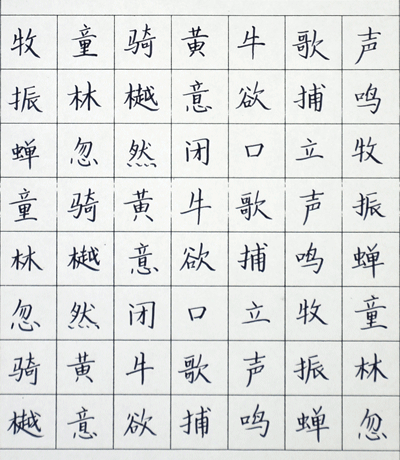 牧童骑黄牛歌声
振林樾意欲捕鸣
蝉忽然闭口立牧
童骑黄牛歌声振
林樾意欲捕鸣蝉
忽然闭口立牧童
骑黄牛歌声振林
樾意欲捕鸣蝉忽